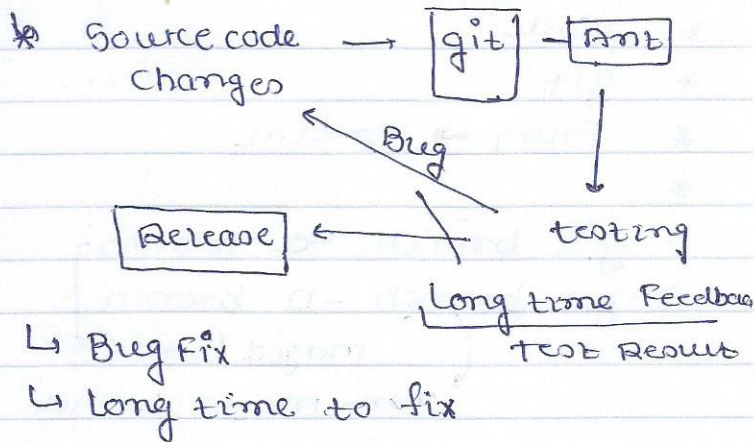 * Source code → git - Ant
Changes
Bug
Release ← testing
Long time Feedbac
Test Result
↳ Bug Fix
↳ Long time to fix